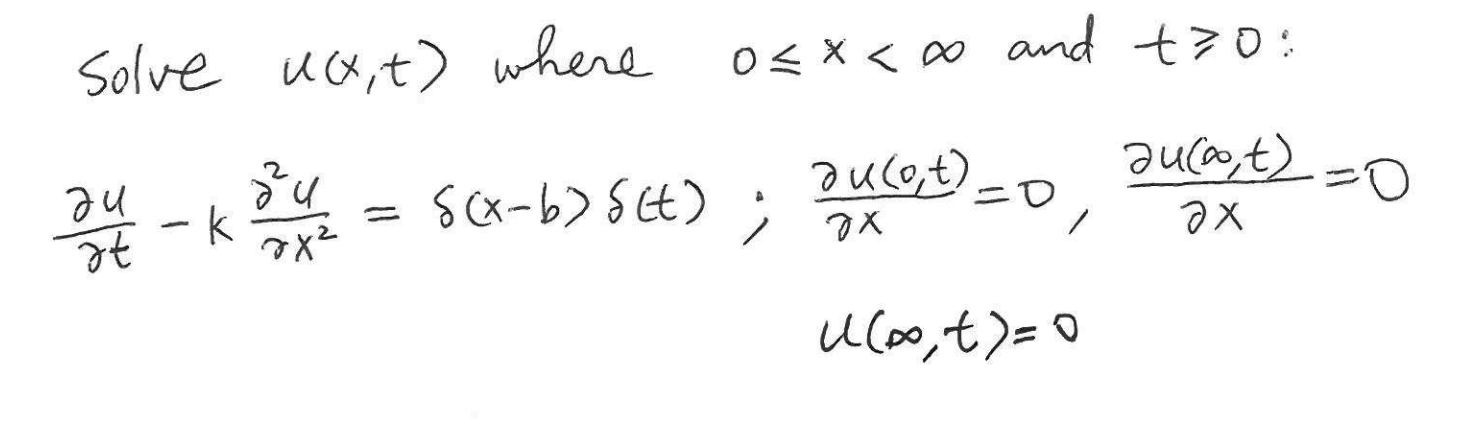 Solve u(x,t) where 0 ≤ x < ∞ and t ≥ 0 :
∂u/∂t - k ∂²u/∂x² = δ(x-b) δ(t) ; ∂u(0,t)/∂x = 0 , ∂u(∞,t)/∂x = 0
u(∞,t) = 0